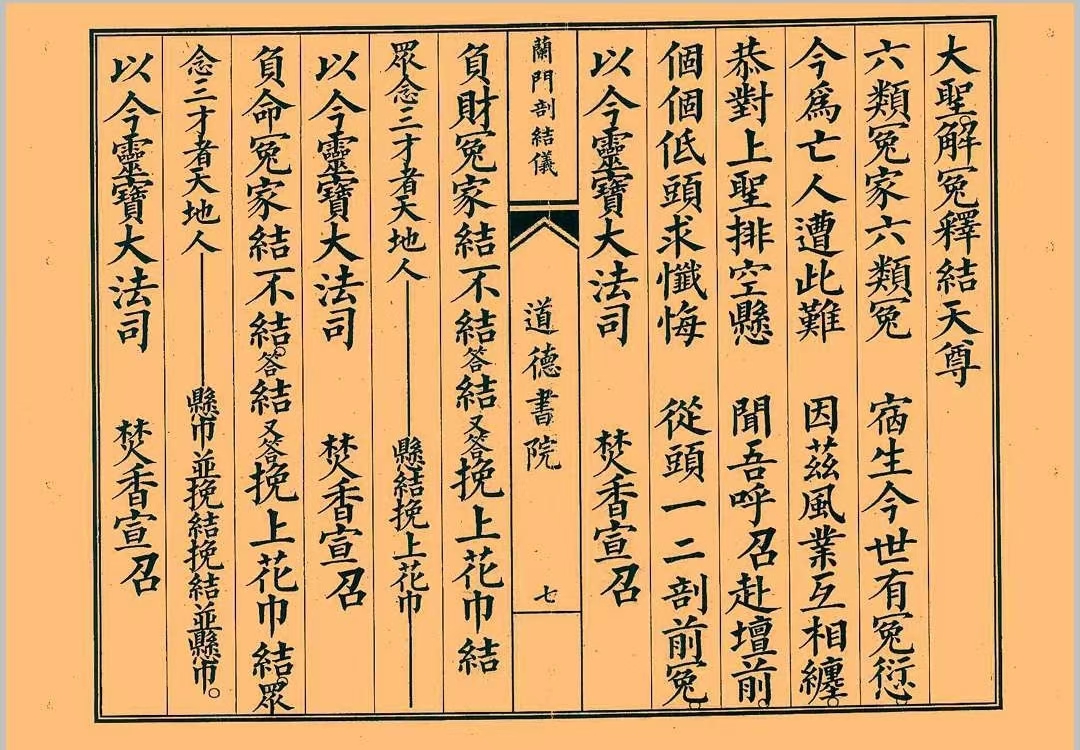 大聖解冤釋結天尊
六類冤家六類冤 宿生今世有冤愆
今爲亡人遭此難 因茲風業互相纏
恭對上聖排空懸 聞吾呼召赴壇前
個個低頭求懺悔 從頭一二剖前冤
以今靈寶大法司 焚香宣召
蘭門剖結儀 道德書院 七
負財冤家結不結答結又答挽上花巾結
眾念三才者天地人——縣結挽上花巾——
以今靈寶大法司 焚香宣召
負命冤家結不結。答結又答挽上花巾結。眾
念三才者天地人——縣巾並挽結挽結並縣巾。
以今靈寶大法司 焚香宣召